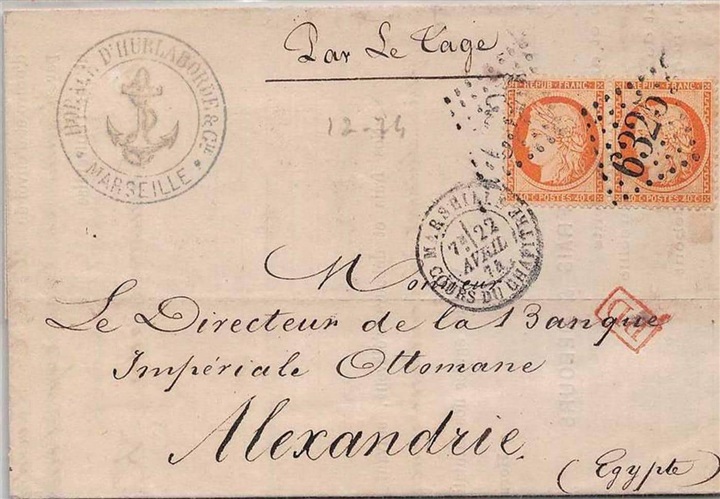 Par Le Tage
D'HURLABORDE & Cie
MARSEILLE
12-74
REPUB · FRANC ·
40 C · POSTES · 40 C ·
REPUB · FRANC ·
40 C · POSTES · 40 C ·
6325
MARSEILLE
22
AVRIL
74
COURS DU CHAPITRE
Monsieur
Le Directeur de la Banque
Impériale Ottomane
Alexandrie
(Egypte)